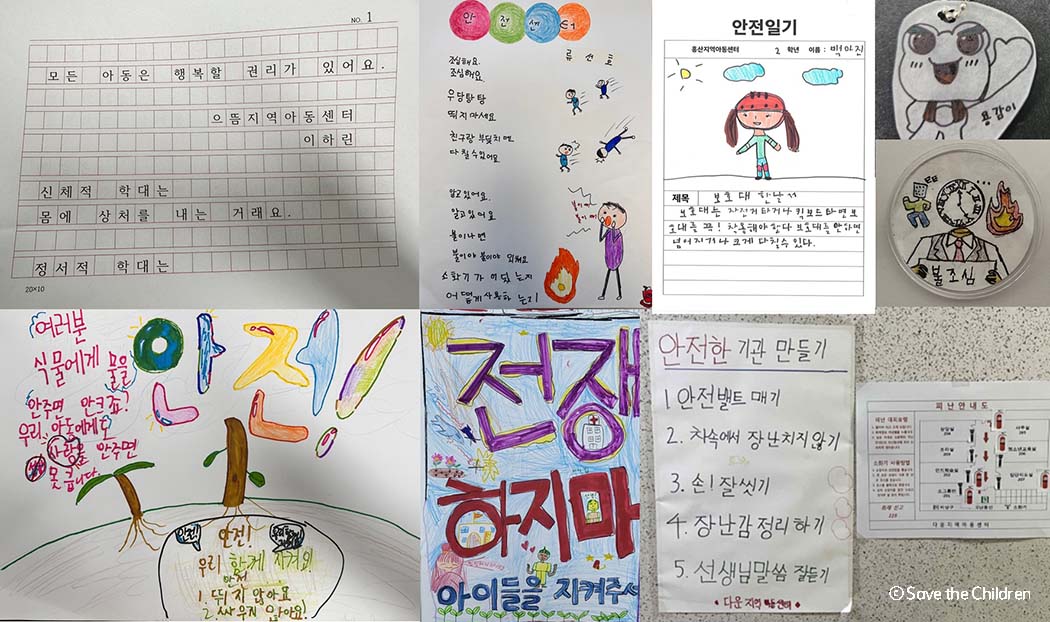 NO. 1
모든 아동은 행복할 권리가 있어요.
으뜸지역아동센터
이하린
신체적 학대는
몸에 상처를 내는 거래요.
정서적 학대는
20×10
안전센터
류선호
조심해요.
조심해요
우당탕탕
뛰지마세요
친구랑 부딪치면
다칠수있어요
알고있어요.
알고있어요
불이나면
불이야 불이야 외쳐요
소화기가 어딨는지
어떻게사용하는지
안전일기
흥산지역아동센터 2 학년 이름 :
제목 보호대 한날서
보호대는 자전거타거나 킥보드타면보
호대를 꼭! 착용해야합니다 보호대를안하면
넘어지거나 크게 다칠수 있다.
용감이
불조심
여러분
식물에게 물을
안주면 안크죠?
우리 아동에게도
사랑을 안주면
못큽니다.
안전!
안전!
안전!
우리 함께 지켜요!
안전
1. 뛰지 않아요
2. 싸우지 않아요!
전쟁
하지마
아이들을 지켜주세
안전한 기관 만들기
1 안전밸트 매기
2. 차속에서 장난치지않기
3. 손! 잘씻기
4. 장난감정리하기
5. 선생님말씀 잘듣기
다운지역아동센터
피난안내도
소화기 사용방법
화재 신고
119
다운지역아동센터
ⓒ Save the Children